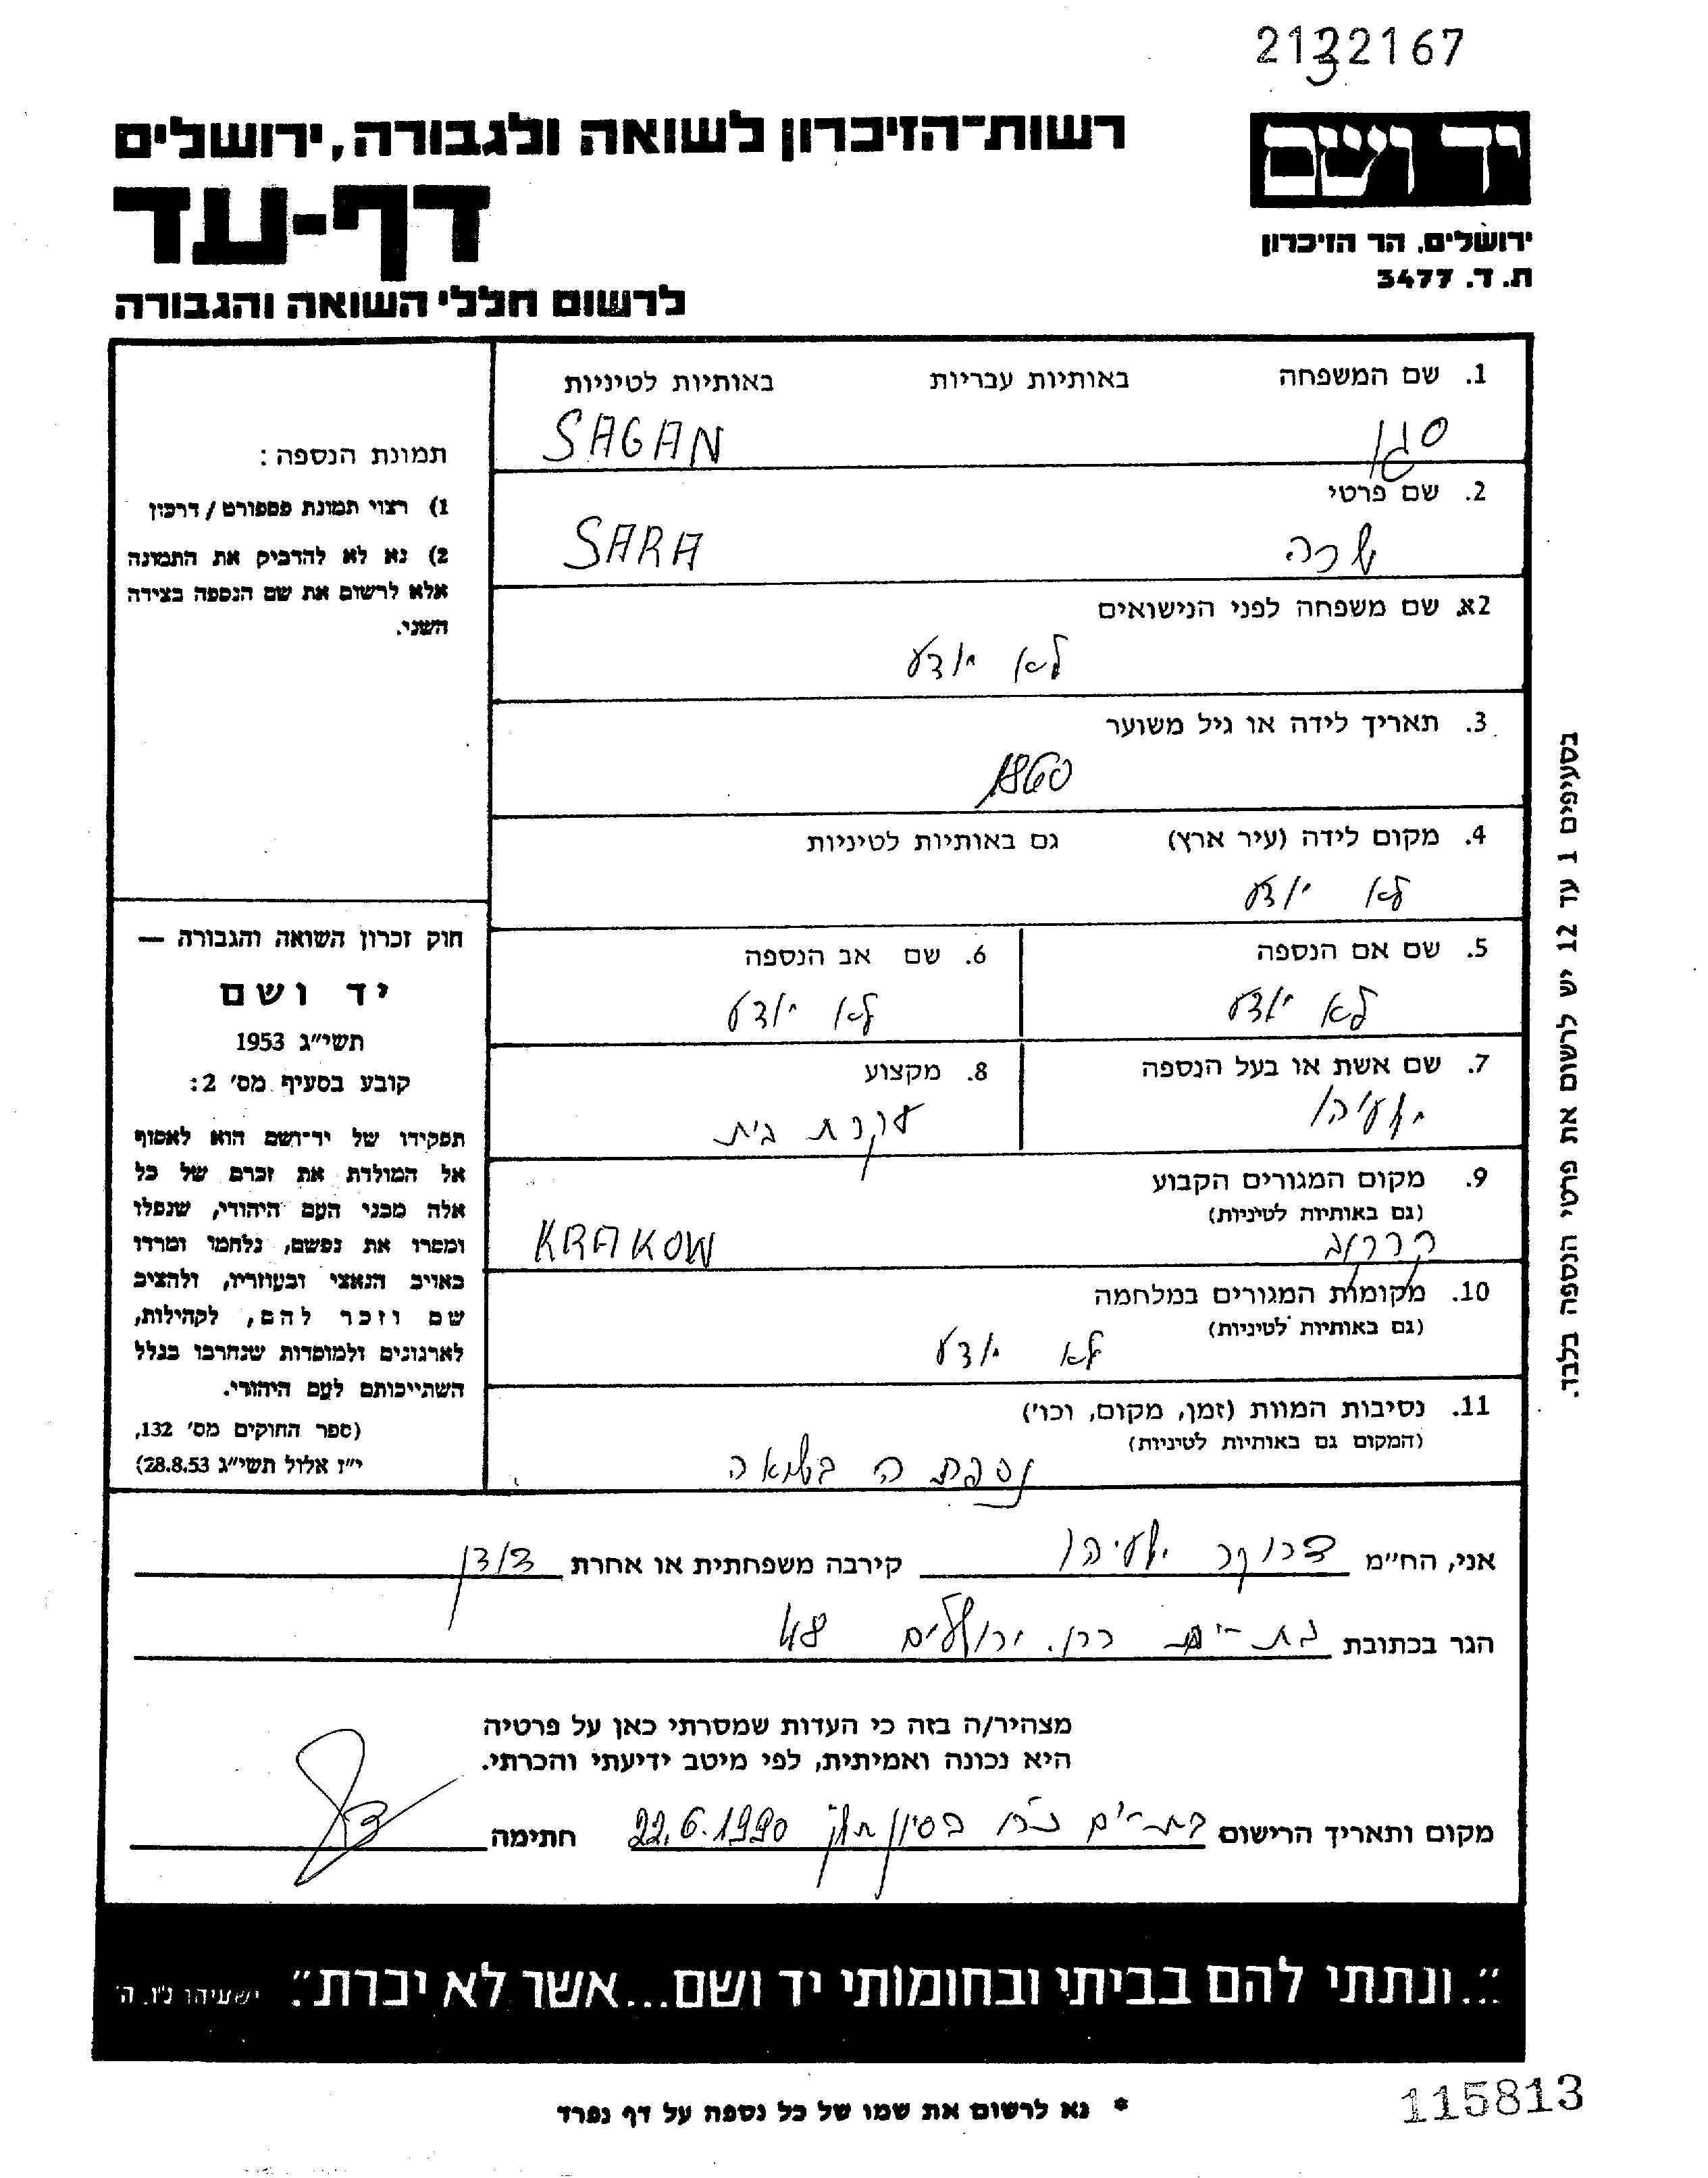 2132167
יד ושם
ירושלים, הר הזיכרון
ת. ד. 3477
רשות-הזיכרון לשואה ולגבורה, ירושלים
דף-עד
לרשום חללי השואה והגבורה
1. שם המשפחה באותיות עבריות באותיות לטיניות
סגן SAGAN
2. שם פרטי
שרה SARA
2א. שם משפחה לפני הנישואים
לא יודע
3. תאריך לידה או גיל משוער
1860
4. מקום לידה (עיר ארץ) גם באותיות לטיניות
לא יודע
5. שם אם הנספה 6. שם אב הנספה
לא יודע לא יודע
7. שם אשת או בעל הנספה 8. מקצוע
ישעיהו עקרת בית
9. מקום המגורים הקבוע
(גם באותיות לטיניות)
קרקוב KRAKOW
10. מקומות המגורים במלחמה
(גם באותיות לטיניות)
לא יודע
11. נסיבות המוות (זמן, מקום, וכו')
(המקום גם באותיות לטיניות)
נספתה בשואה
תמונת הנספה:
1) רצוי תמונת פספורט / דרכון
2) נא לא להדביק את התמונה
אלא לרשום את שם הנספה בצידה
השני.
חוק זכרון השואה והגבורה —
יד ושם
תשי"ג 1953
קובע בסעיף מס' 2:
תפקידו של יד-ושם הוא לאסוף
אל המולדת את זכרם של כל
אלה מבני העם היהודי, שנפלו
ומסרו את נפשם, נלחמו ומרדו
באויב הנאצי ובעוזריו, ולהציב
שם וזכר להם, לקהילות,
לארגונים ולמוסדות שנחרבו בגלל
השתייכותם לעם היהודי.
(ספר החוקים מס' 132,
י"ז אלול תשי"ג 28.8.53)
בסעיפים 1 עד 12 יש לרשום את פרטי הנספה בלבד.
אני, הח"מ דרוקר ישעיהו קירבה משפחתית או אחרת דודן
הגר בכתובת בת-ים רח. ירושלים 48
מצהיר/ה בזה כי העדות שמסרתי כאן על פרטיה
היא נכונה ואמיתית, לפי מיטב ידיעתי והכרתי.
מקום ותאריך הרישום בת-ים בסיון 22.6.1990 חתימה
"...ונתתי להם בביתי ובחומותי יד ושם...אשר לא יכרת". ישעיהו נ"ו, ה'
* נא לרשום את שמו של כל נספה על דף נפרד
115813